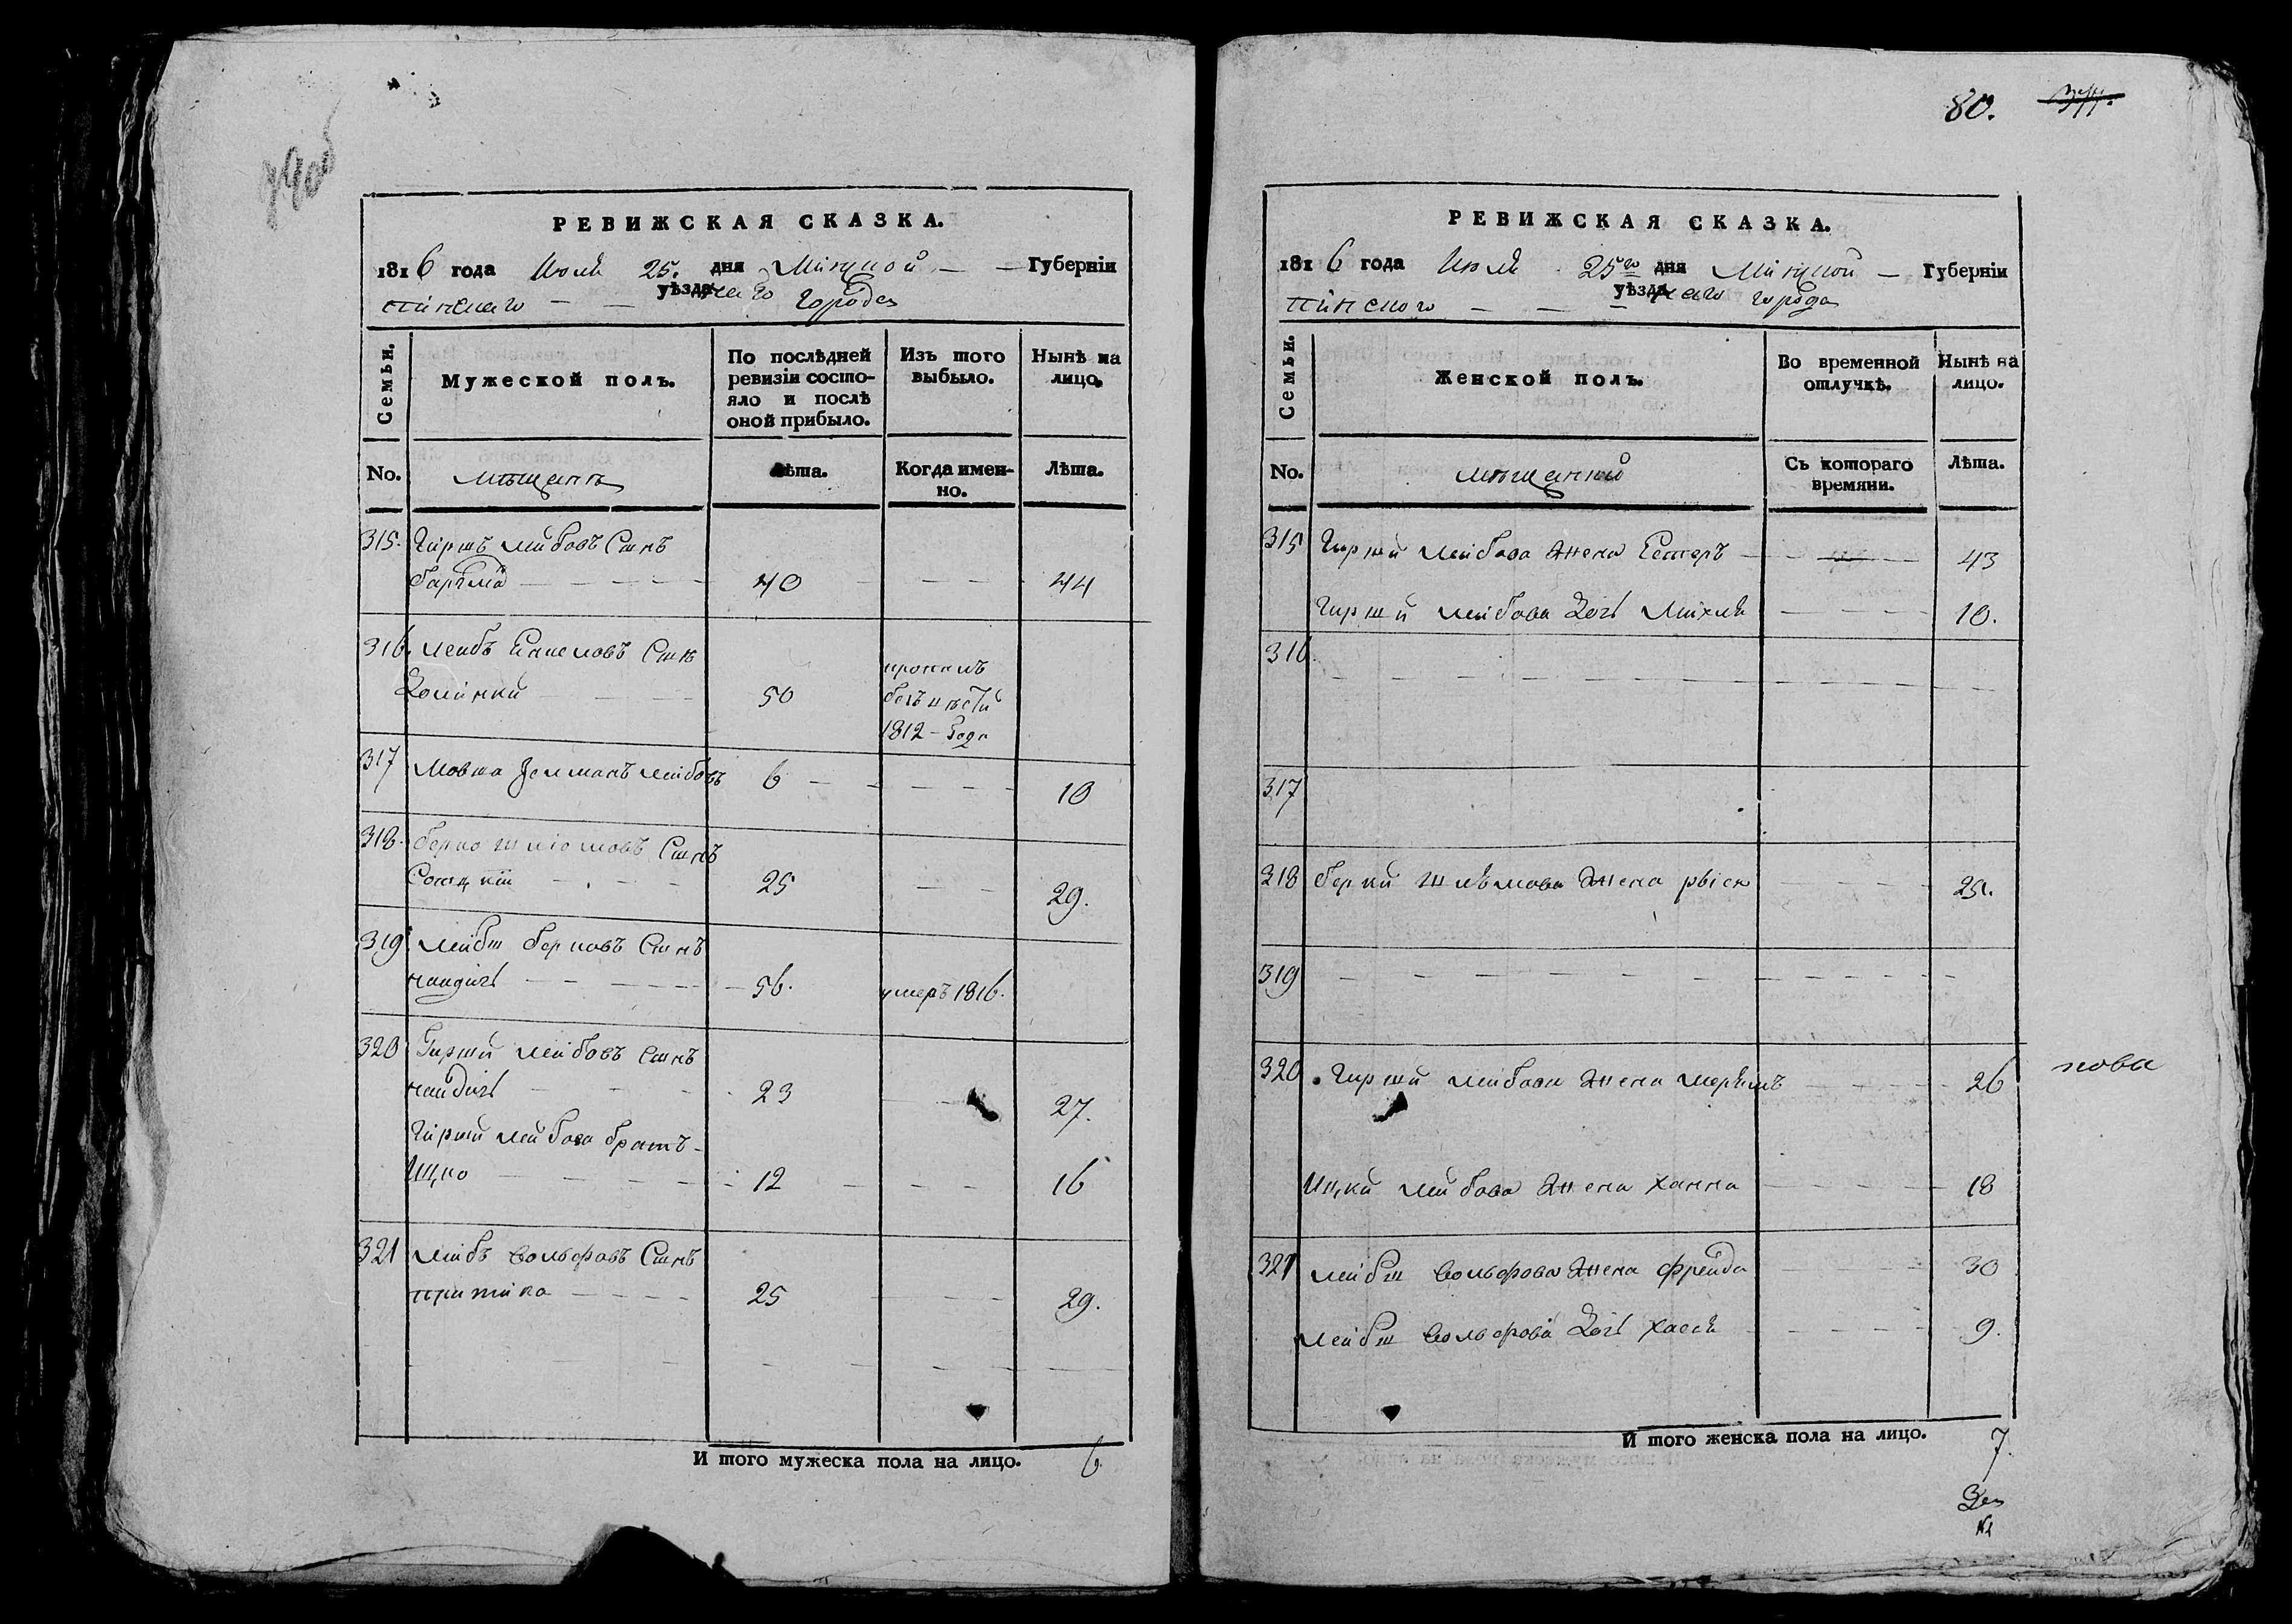 РЕВИЖСКАЯ СКАЗКА.
1816 года Июля 25. дня Минской Губернiи
пинскаго уѣзда города
Семьи.
Мужеской полъ.
По послѣдней ревизiи состо-
яло и послѣ
оной прибыло.
Изъ того
выбыло.
Нынѣ на
лицо.
No.
мѣщанъ
Лѣта.
Когда имен-
но.
Лѣта.
315. Гиршъ лейбовъ Сынъ
40 44
316. лейбъ Сынъ
50
безъ вѣсти
1812 года
317 Мовша Зелманъ лейбовъ 6 10
318. берко шліомовъ Сынъ
25 29.
319 лейбш берковъ Сынъ
56. умеръ 1816.
320 Гирши лейбовъ Сынъ
23 27.
Гирши лейбова братъ
Ицко 12 16
321 лейбъ вольфовъ Сынъ
25 29.
И того мужеска пола на лицо. 6
80.
РЕВИЖСКАЯ СКАЗКА.
1816 года Июля 25го дня Минской Губернiи
пинского уѣзда города
Семьи.
Женской полъ.
Во временной
отлучкѣ.
Нынѣ на
лицо.
No.
мѣщанки
Съ котораго
времяни.
Лѣта.
315 Гирши лейбова жена Естеръ 43
Гирши лейбова дочь 10.
316
317
318 берки шлѣмова жена 25.
319
320 Гирши лейбова жена 26
Ицки лейбова жена ханна 18
321 лейбш вольфова жена фрейда 30
лейбш вольфова дочь хася 9.
И того женска пола на лицо. 7.